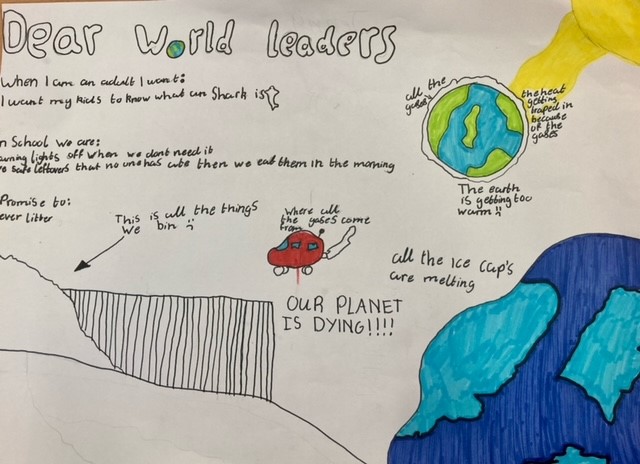 Dear World leaders
When I am an adult I want:
I want my kids to know what an Shark is
n School we are:
urning lights off when we dont need it
leftovers that no one has then we eat them in the morning
Promise to:
ever litter
This is all the things
We bin :(
Where all
the gases come
from
all the
gases
the heat
getting
traped in
because
of the
gases
The earth
is getting too
warm
all the Ice cap's
are melting
OUR PLANET
IS DYING!!!!